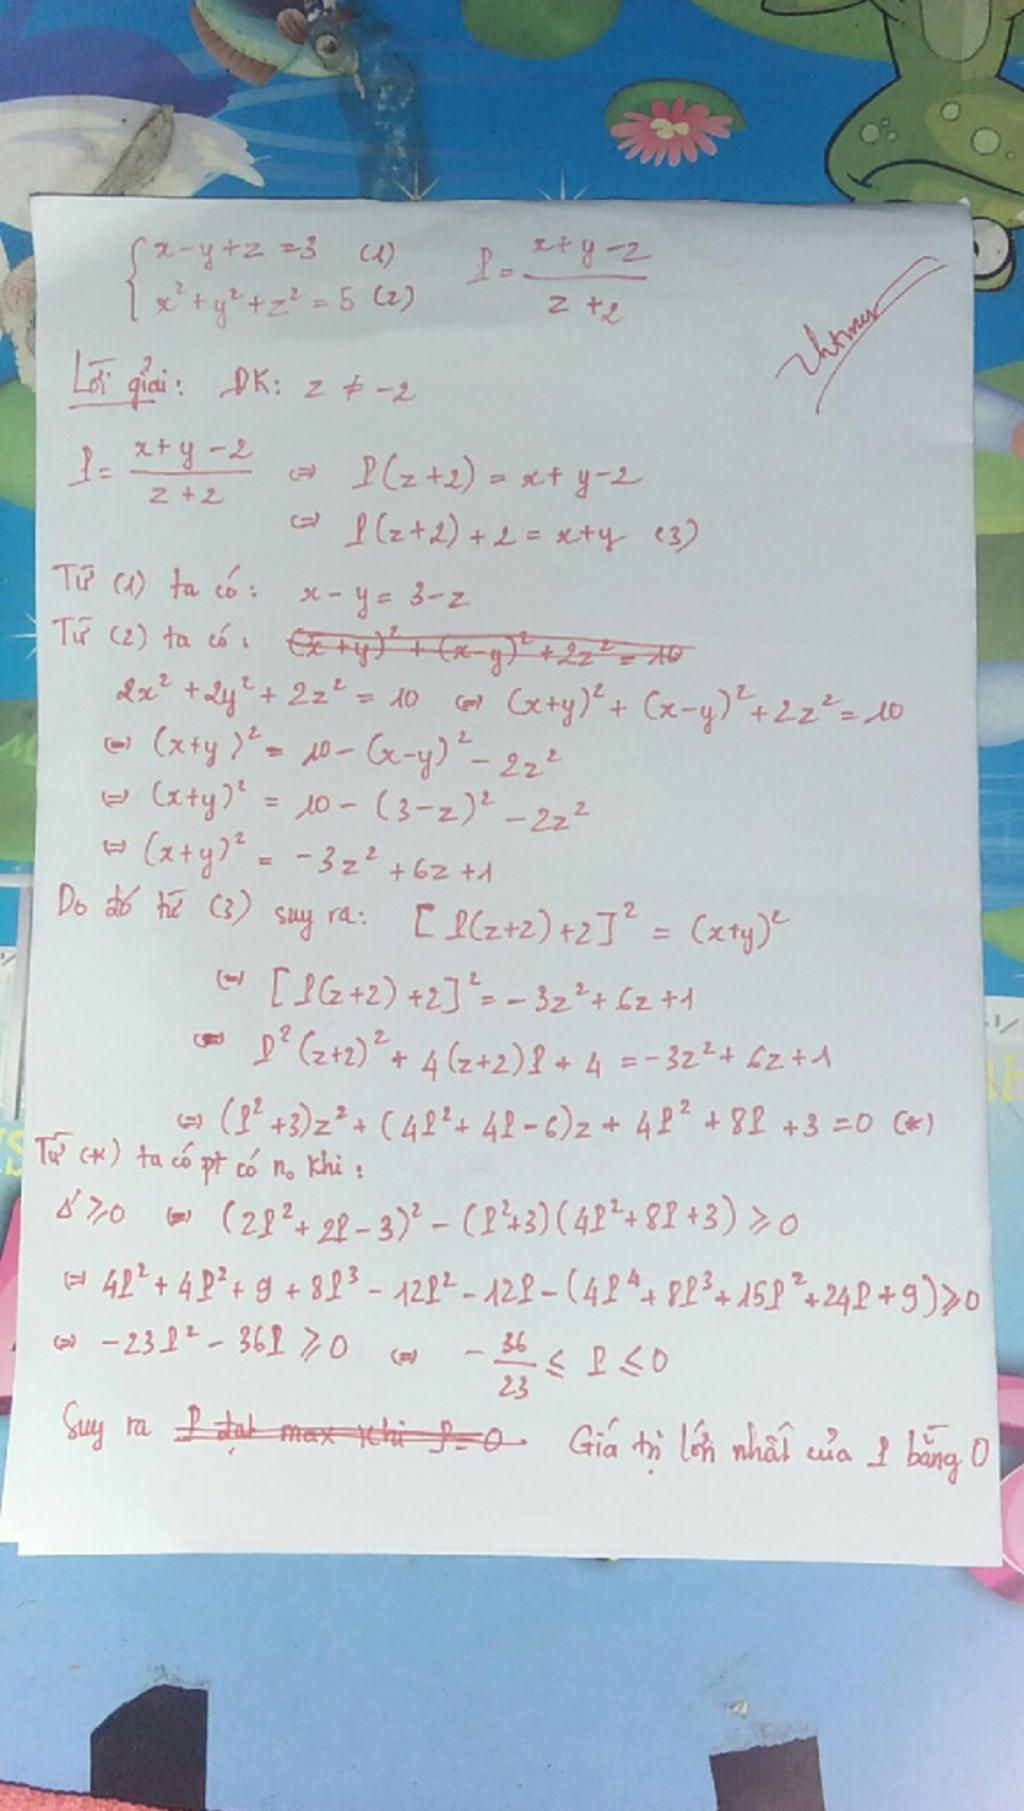 { x - y + z = 3 (1)
x² + y² + z² = 5 (2)
P = (x + y - 2) / (z + 2)
Lời giải: ĐK: z ≠ -2
P = (x + y - 2) / (z + 2) ⇔ P(z+2) = x + y - 2
⇔ P(z+2) + 2 = x + y (3)
Từ (1) ta có: x - y = 3 - z
Từ (2) ta có: (x+y)² + (x-y)² + 2z² = 10
2x² + 2y² + 2z² = 10 ⇔ (x+y)² + (x-y)² + 2z² = 10
⇔ (x+y)² = 10 - (x-y)² - 2z²
⇔ (x+y)² = 10 - (3-z)² - 2z²
⇔ (x+y)² = -3z² + 6z + 1
Do đó từ (3) suy ra: [P(z+2) + 2]² = (x+y)²
⇔ [P(z+2) + 2]² = -3z² + 6z + 1
⇔ P²(z+2)² + 4(z+2)P + 4 = -3z² + 6z + 1
⇔ (P² + 3)z² + (4P² + 4P - 6)z + 4P² + 8P + 3 = 0 (*)
Từ (*) ta có pt có n₀ khi:
Δ' ≥ 0 ⇔ (2P² + 2P - 3)² - (P² + 3)(4P² + 8P + 3) ≥ 0
⇔ 4P² + 4P² + 9 + 8P³ - 12P² - 12P - (4P⁴ + 8P³ + 15P² + 24P + 9) ≥ 0
⇔ -23P² - 36P ≥ 0 ⇔ -36/23 ≤ P ≤ 0
Suy ra P đạt max khi P = 0. Giá trị lớn nhất của P bằng 0